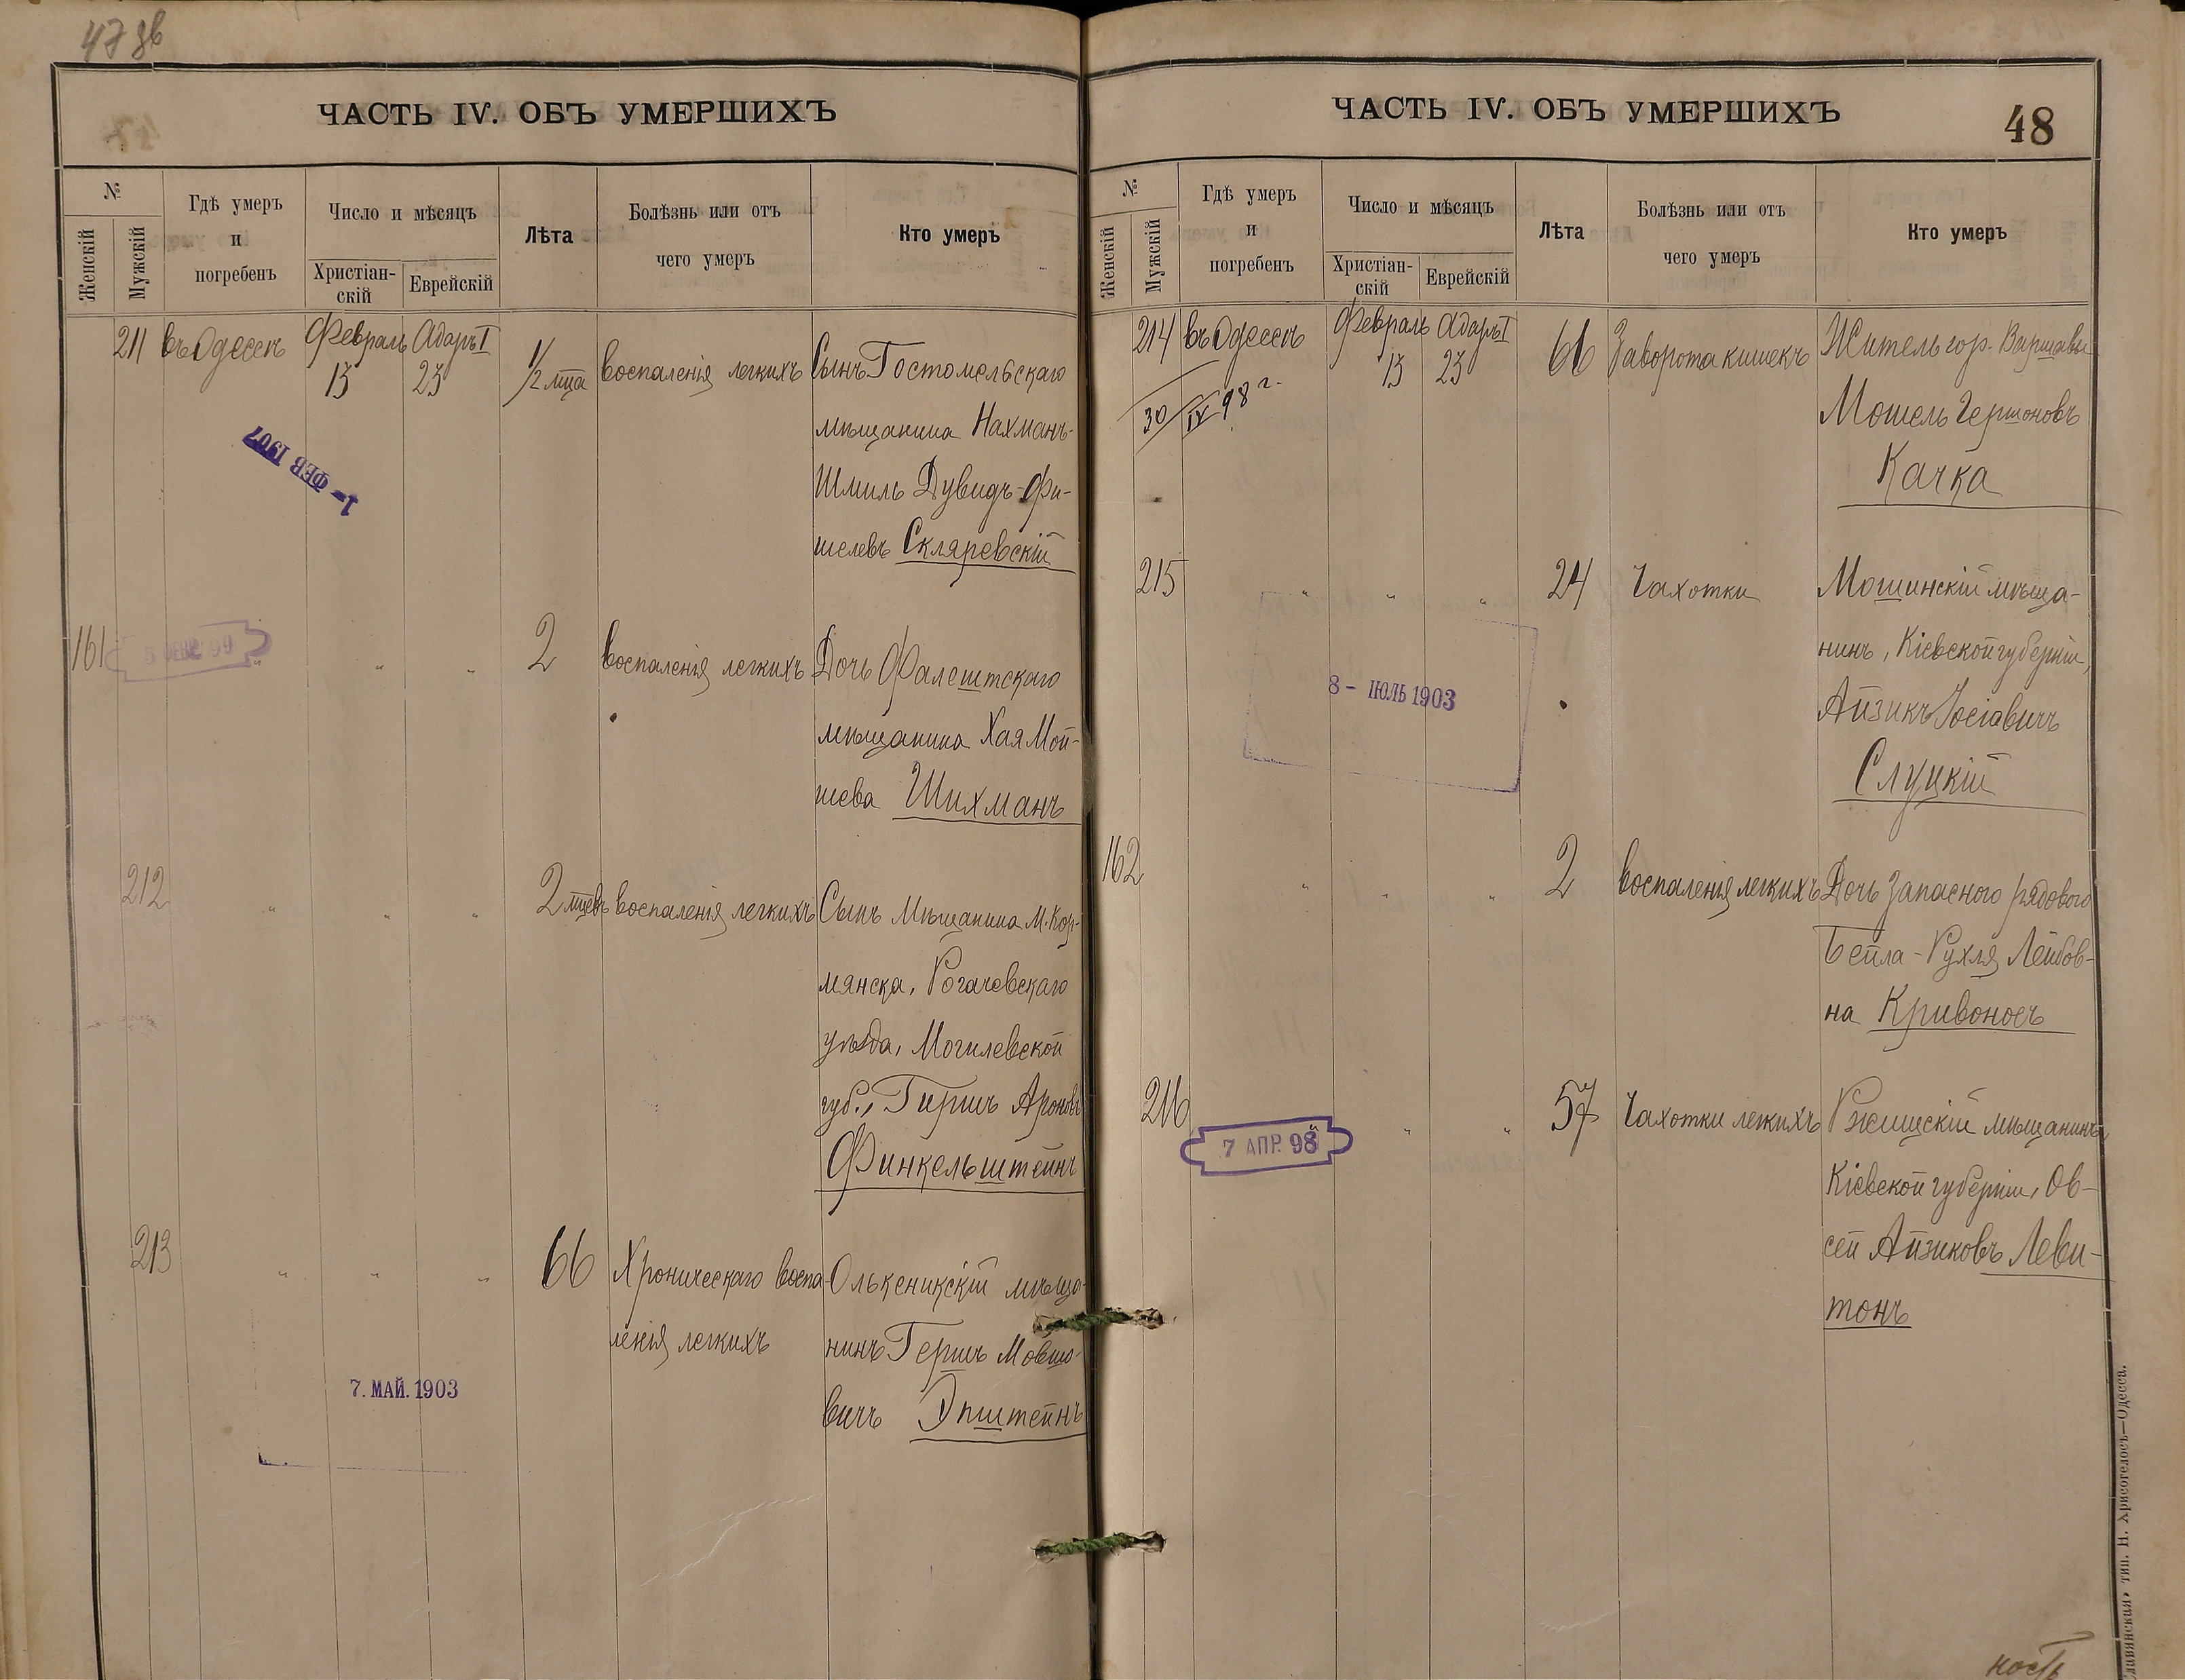 47 зв
ЧАСТЬ IV. ОБЪ УМЕРШИХЪ
№
Женскій
Мужскій
Гдѣ умеръ
и
погребенъ
Число и мѣсяцъ
Христіан-
скій
Еврейскій
Лѣта
Болѣзнь или отъ
чего умеръ
Кто умеръ
211 въ Одессѣ Февраль Адаръ I ½ мца воспаленія легкихъ Сынъ Гостомельскаго
13 23
мѣщанина Нахманъ-
Шмиль Дувидъ-Фи-
шелевъ Скляревскій
1- ФЕВ 1907
161 " " " 2 воспаленія легкихъ Дочь Фалештскаго
5 ФЕВР 99
мѣщанина Хая Мой-
шева Шихманъ
212 " " " 2 мцевъ воспаленія легкихъ Сынъ Мѣщанина М. Кор-
мянска, Рогачевскаго
уѣзда, Могилевской
губ., Гиршъ Ароновъ
Финкельштейнъ
213 " " " 66 Хроническаго воспа- Олькеникскій мѣща-
ленія легкихъ нинъ Гершъ Мовшо-
вичъ Эпштейнъ
7. МАЙ. 1903
ЧАСТЬ IV. ОБЪ УМЕРШИХЪ
48
№
Женскій
Мужскій
Гдѣ умеръ
и
погребенъ
Число и мѣсяцъ
Христіан-
скій
Еврейскій
Лѣта
Болѣзнь или отъ
чего умеръ
Кто умеръ
214 въ Одессѣ Февраль Адаръ I 66 Заворота кишекъ Житель гор. Варшавы
13 23
30/IV 98 г.
Мошель Гершоновъ
Качка
215 " " " 24 Чахотки Мошинскій мѣща-
нинъ, Кіевской губерніи,
Айзикъ Іосіавичъ
Слуцкій
8 - ІЮЛЬ 1903
162 " " " 2 воспаленія легкихъ Дочь запасного рядового
Бейла-Рухля Лейбов-
на Кривоносъ
216 " " " 57 Чахотки легкихъ Ржищскій мѣщанинъ,
7 АПР. 98
Кіевской губерніи, Ов-
сей Айзиковъ Леви-
тонъ
тип. Н. Хрисогелосъ—Одесса.
ность